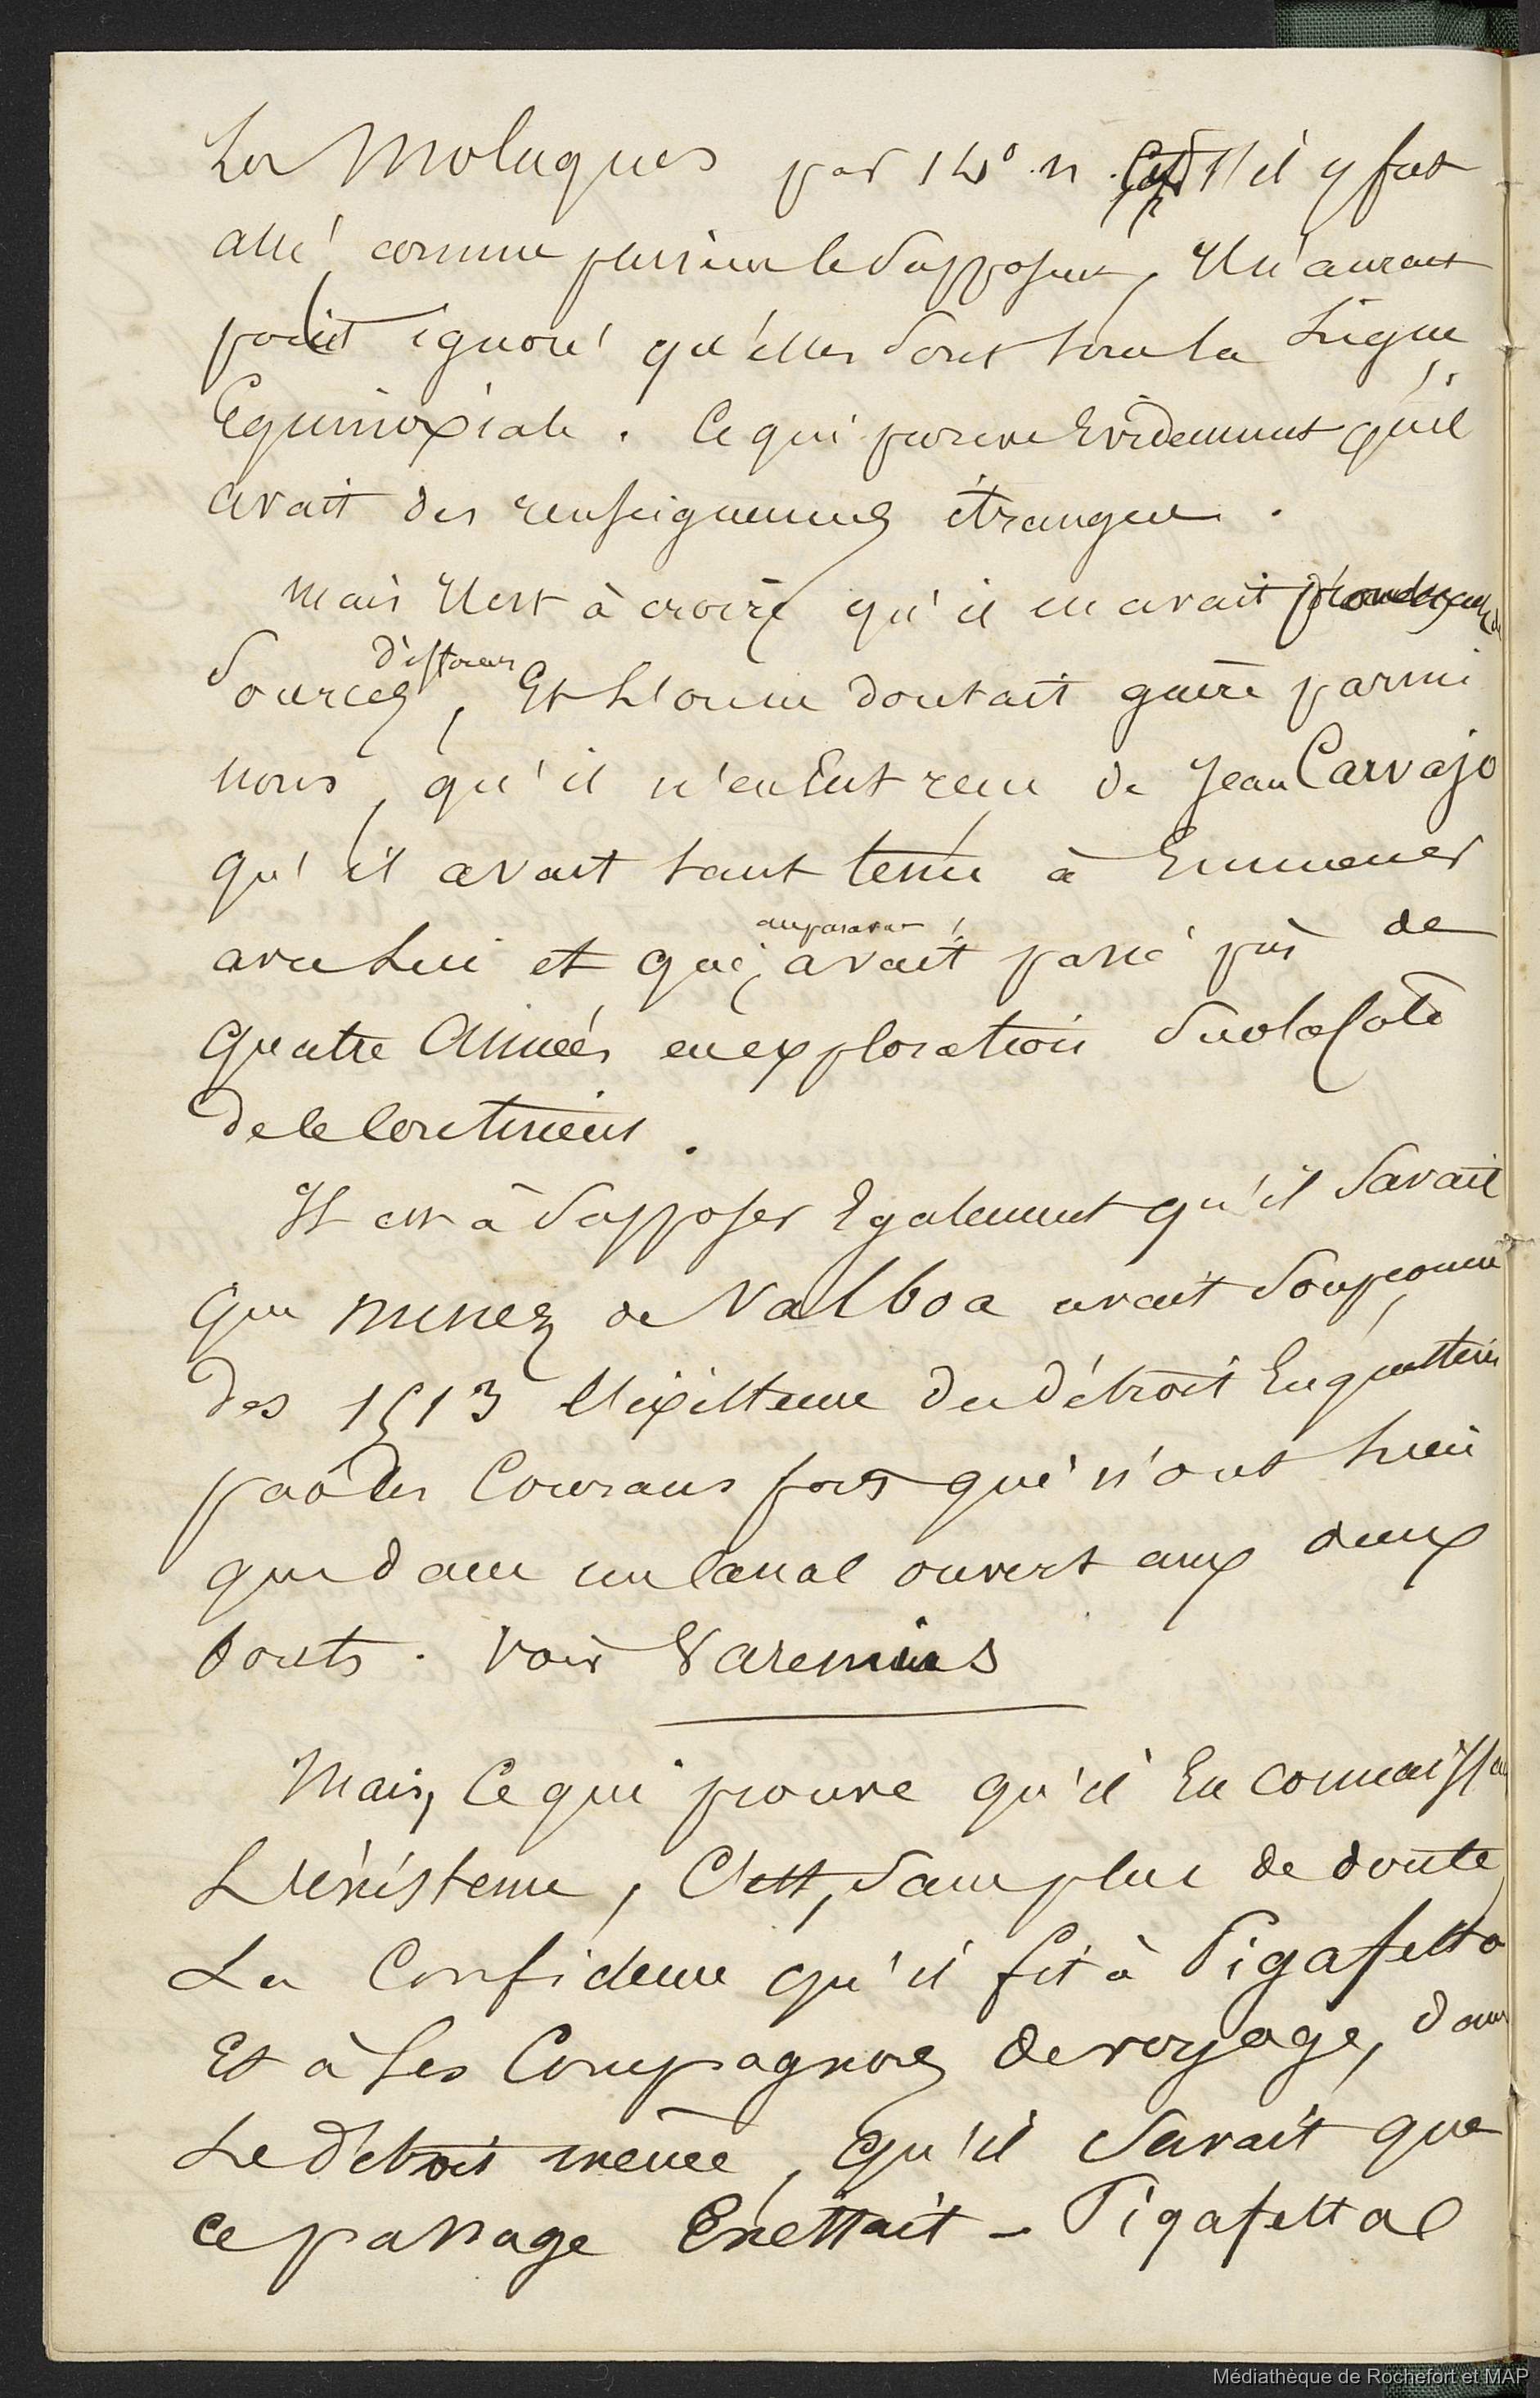 Les Moluques par 14° n. s'il y fut
allé comme plusieurs le supposent, Il n'aurait
point ignoré qu'elles sont sous la Ligne
Equinoxiale. Ce qui prouve Evidemment qu'il
avait des renseignemens étrangers.
Mais Il est à croire qu'il en avait
d'ailleurs
Sources, Et L'on ne doutait guère parmi
nous, qu'il n'en Eut reçu de Jean Carvajo
qu'il avait tant tenu à Emmener
auparavant
avec Lui et qui avait passé près de
quatre Années en exploration sur la Cote
de le Continent.
Il est à supposer Egalement qu'il savait
que nunez de Valboa avait soupçonné
des 1513 l'existence du détroit En question
par des Courans forts qui n'ont lieu
que dans un Canal ouvert aux deux
bouts. Voir Varenius
Mais, Ce qui prouve qu'il En connaissait
L'existence, C'est, sans plus de doute,
La Confidence qu'il fit à Pigafetta
Et à ses Compagnons de voyage, dans
Le détroit même, qu'il savait que
ce passage Existait - Pigafetta
Médiathèque de Rochefort et MAP